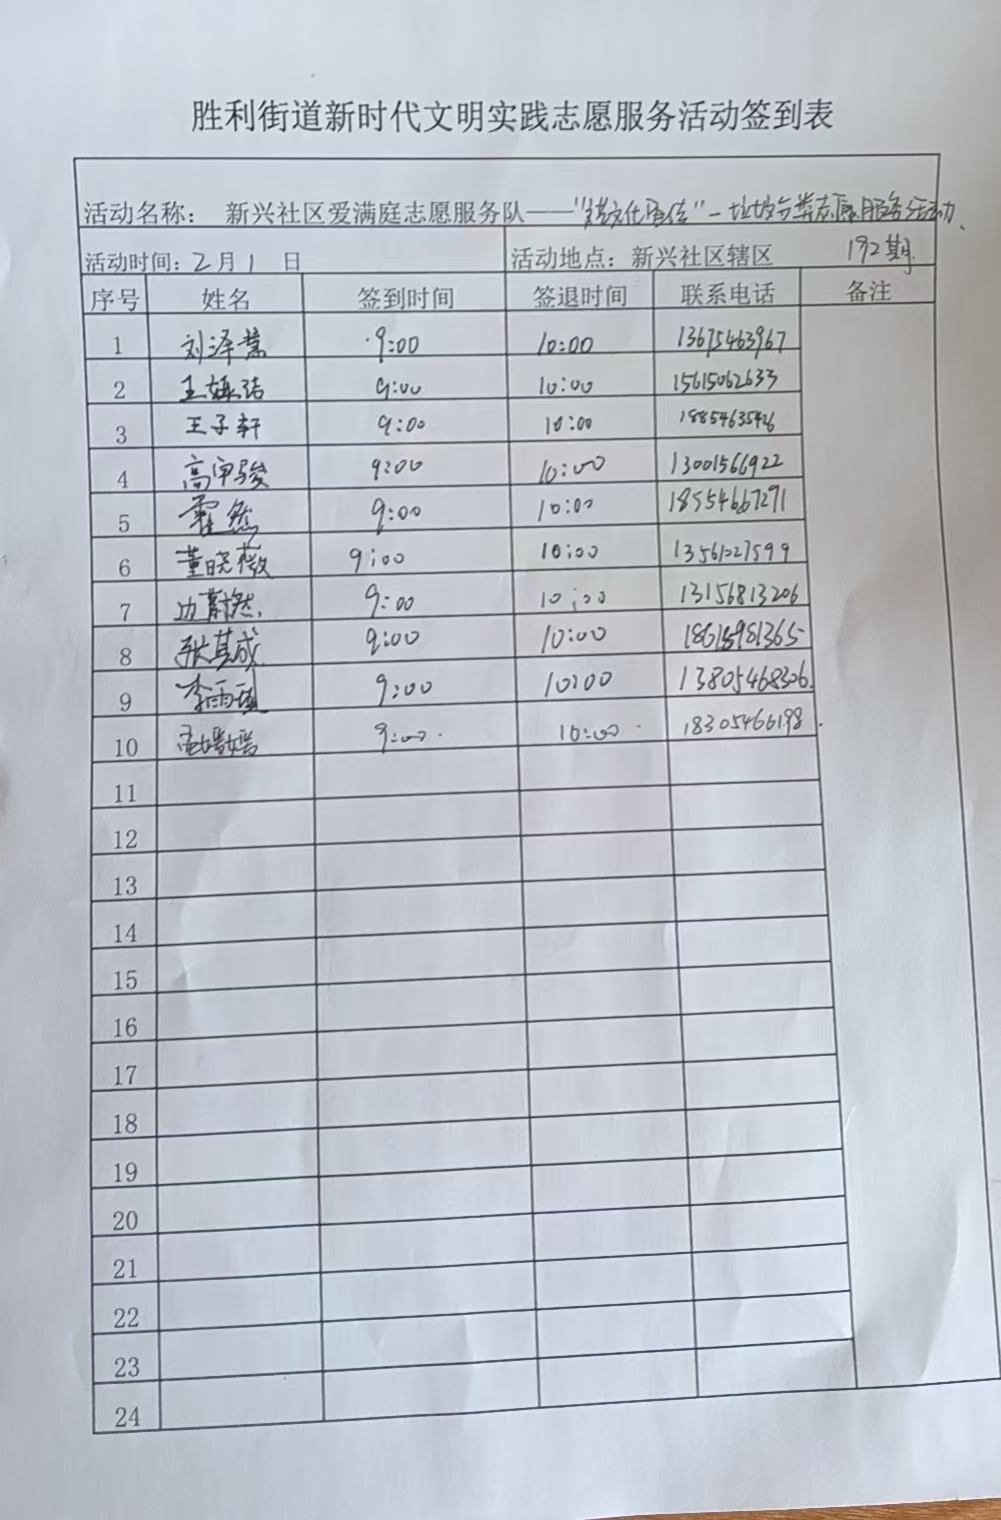 胜利街道新时代文明实践志愿服务活动签到表
活动名称： 新兴社区爱满庭志愿服务队——“ 文化 传”一垃圾分类志愿服务活动、
活动时间：2月1 日 活动地点：新兴社区辖区 192期
序号 姓名 签到时间 签退时间 联系电话 备注
1 刘泽慧 9:00 10:00 13675463967
2 王 洁 9:00 10:00 15615062633
3 王子轩 9:00 10:00 18854635426
4 高 骏 9:00 10:00 13001566922
5 霍然 9:00 10:00 18554667271
6 董晓薇 9:00 10:00 13561027599
7 蔚然 9:00 10:00 13156813206
8 张其成 9:00 10:00 18615981365
9 李雨 9:00 10:00 13805468306
10 9:00 10:00 18305466198
11
12
13
14
15
16
17
18
19
20
21
22
23
24